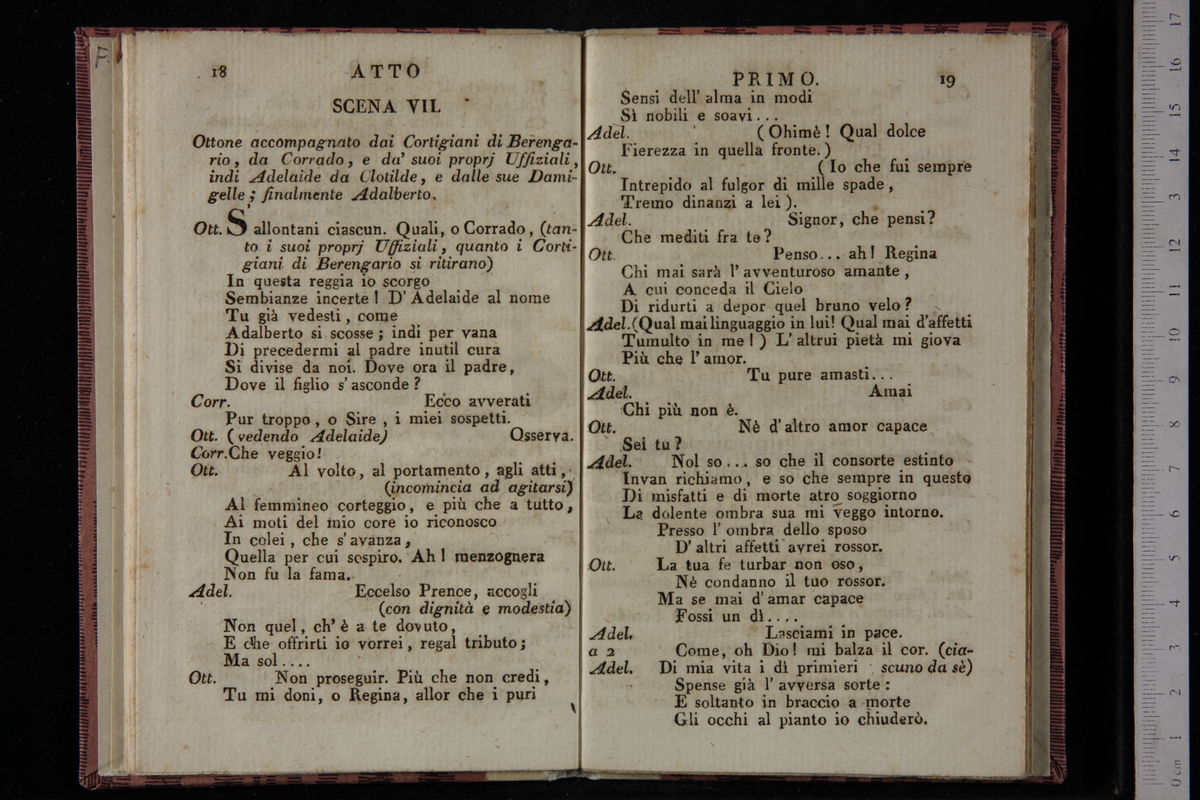 F.
18 ATTO
SCENA VII.
Ottone accompagnato dai Cortigiani di Berenga-
rio, da Corrado, e da' suoi proprj Uffiziali,
indi Adelaide da Clotilde, e dalle sue Dami-
gelle; finalmente Adalberto.
Ott. S'allontani ciascun. Quali, o Corrado, (tan-
to i suoi proprj Uffiziali, quanto i Corti-
giani di Berengario si ritirano)
In questa reggia io scorgo
Sembianze incerte! D'Adelaide al nome
Tu già vedesti, come
Adalberto si scosse; indi per vana
Di precedermi al padre inutil cura
Si divise da noi. Dove ora il padre,
Dove il figlio s'asconde?
Corr. Ecco avverati
Pur troppo, o Sire, i miei sospetti.
Ott. (vedendo Adelaide) Osserva.
Corr. Che veggio!
Ott. Al volto, al portamento, agli atti,
(incomincia ad agitarsi)
Al femmineo corteggio, e più che a tutto,
Ai moti del mio core io riconosco
In colei, che s'avanza,
Quella per cui sospiro. Ah! menzognera
Non fu la fama.
Adel. Eccelso Prence, accogli
(con dignità e modestia)
Non quel, ch'è a te dovuto,
E che offrirti io vorrei, regal tributo;
Ma sol....
Ott. Non proseguir. Più che non credi,
Tu mi doni, o Regina, allor che i puri
PRIMO. 19
Sensi dell'alma in modi
Sì nobili e soavi...
Adel. (Ohimè! Qual dolce
Fierezza in quella fronte.)
Ott. (Io che fui sempre
Intrepido al fulgor di mille spade,
Tremo dinanzi a lei).
Adel. Signor, che pensi?
Che mediti fra te?
Ott. Penso... ah! Regina
Chi mai sarà l'avventuroso amante,
A cui conceda il Cielo
Di ridurti a depor quel bruno velo?
Adel. (Qual mai linguaggio in lui! Qual mai d'affetti
Tumulto in me!) L'altrui pietà mi giova
Più che l'amor.
Ott. Tu pure amasti...
Adel. Amai
Chi più non è.
Ott. Nè d'altro amor capace
Sei tu?
Adel. Nol so... so che il consorte estinto
Invan richiamo, e so che sempre in questo
Di misfatti e di morte atro soggiorno
La dolente ombra sua mi veggo intorno.
Presso l'ombra dello sposo
D'altri affetti avrei rossor.
Ott. La tua fe turbar non oso,
Nè condanno il tuo rossor.
Ma se mai d'amar capace
Fossi un dì....
Adel. Lasciami in pace.
a 2 Come, oh Dio! mi balza il cor. (cia-
Adel. Di mia vita i dì primieri scuno da sè)
Spense già l'avversa sorte:
E soltanto in braccio a morte
Gli occhi al pianto io chiuderò.
0 cm 1 2 3 4 5 6 7 8 9 10 11 12 13 14 15 16 17